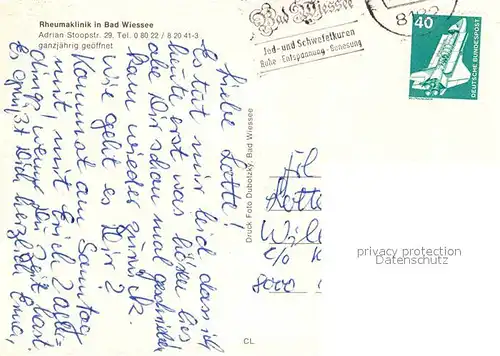 Rheumaklinik in Bad Wiessee
Adrian Stoopstr. 29, Tel. 0 80 22 / 8 20 41-3
ganzjährig geöffnet
Bad Wiessee
Jod- und Schwefelkuren
Ruhe · Entspannung · Genesung
40
DEUTSCHE BUNDESPOST
Liebe Lotte!
Es tut mir leid dass ich
heute erst was hören lies
habe Dir schon mal geschrieben
kam wieder zurück.
wie geht es Dir?
Kommst am Samstag
mit, mit Erich
wenn Du Zeit hast.
Es grüßt Dich herzlich Erna,
Druck Foto Dubotzky, Bad Wiessee
CL
Frl
Lotte
c/o
8000
privacy protection
Datenschutz